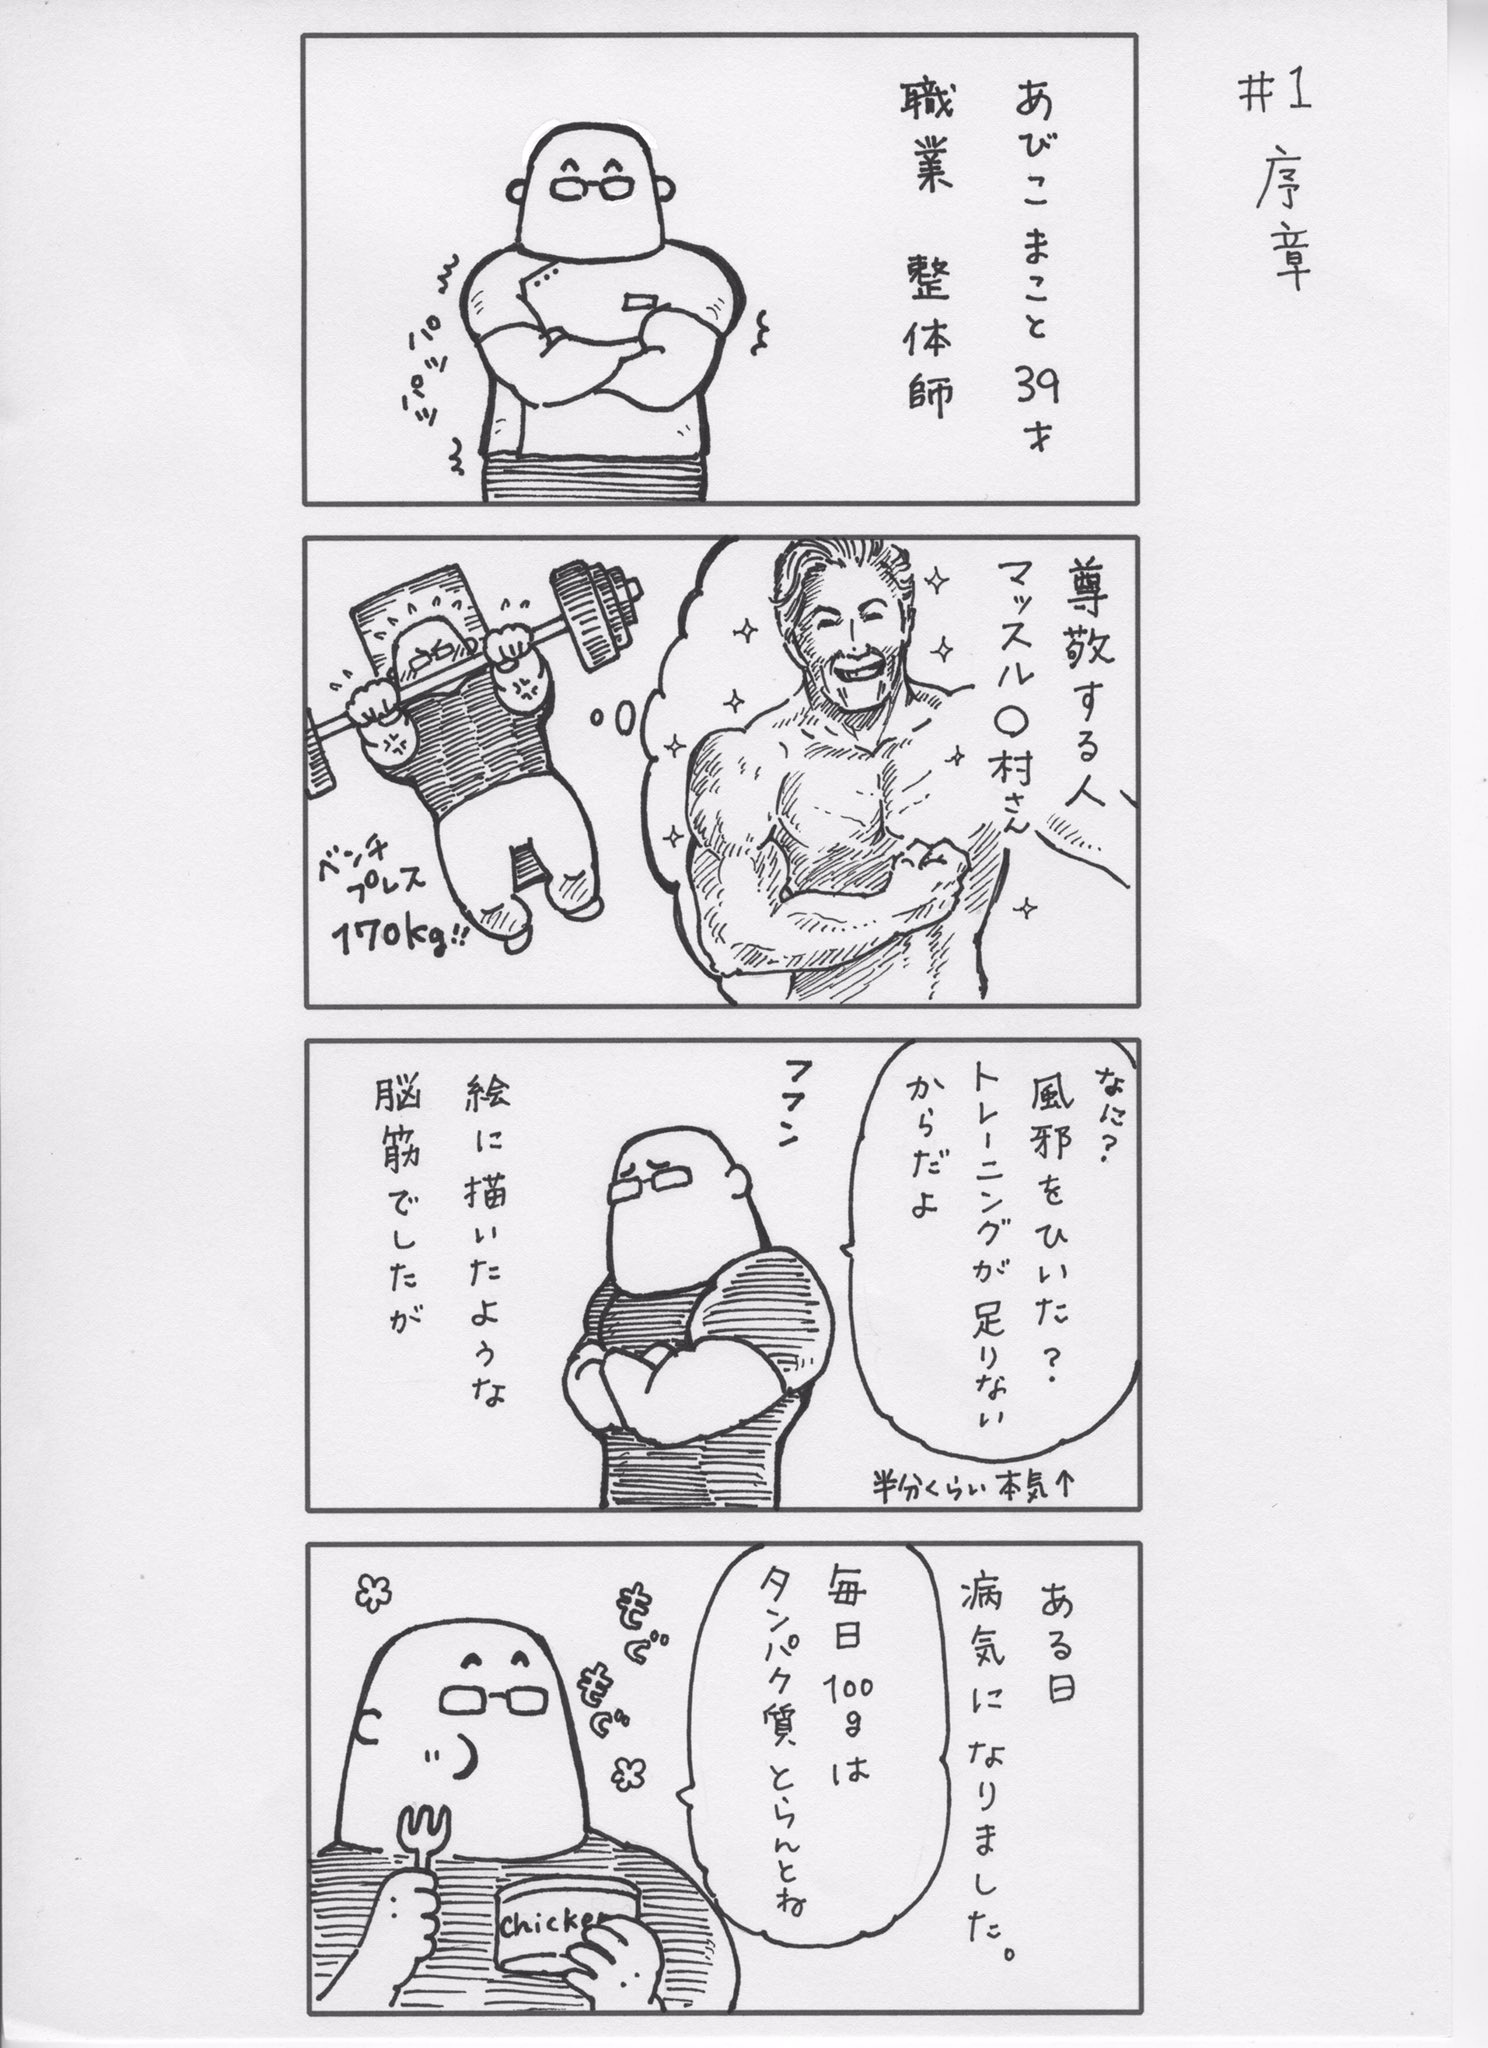 #1 序章
あびこまこと 39才
職業 整体師
パツ
パツ
尊敬する人
マッスル〇村さん
ベンチ
プレス
170kg!!
なに?
風邪をひいた?
トレーニングが足りない
からだよ
半分くらい本気↑
フフン
絵に描いたような
脳筋でしたが
ある日
病気になりました。
毎日100gは
タンパク質とらんとね
もぐ
もぐ
chicken